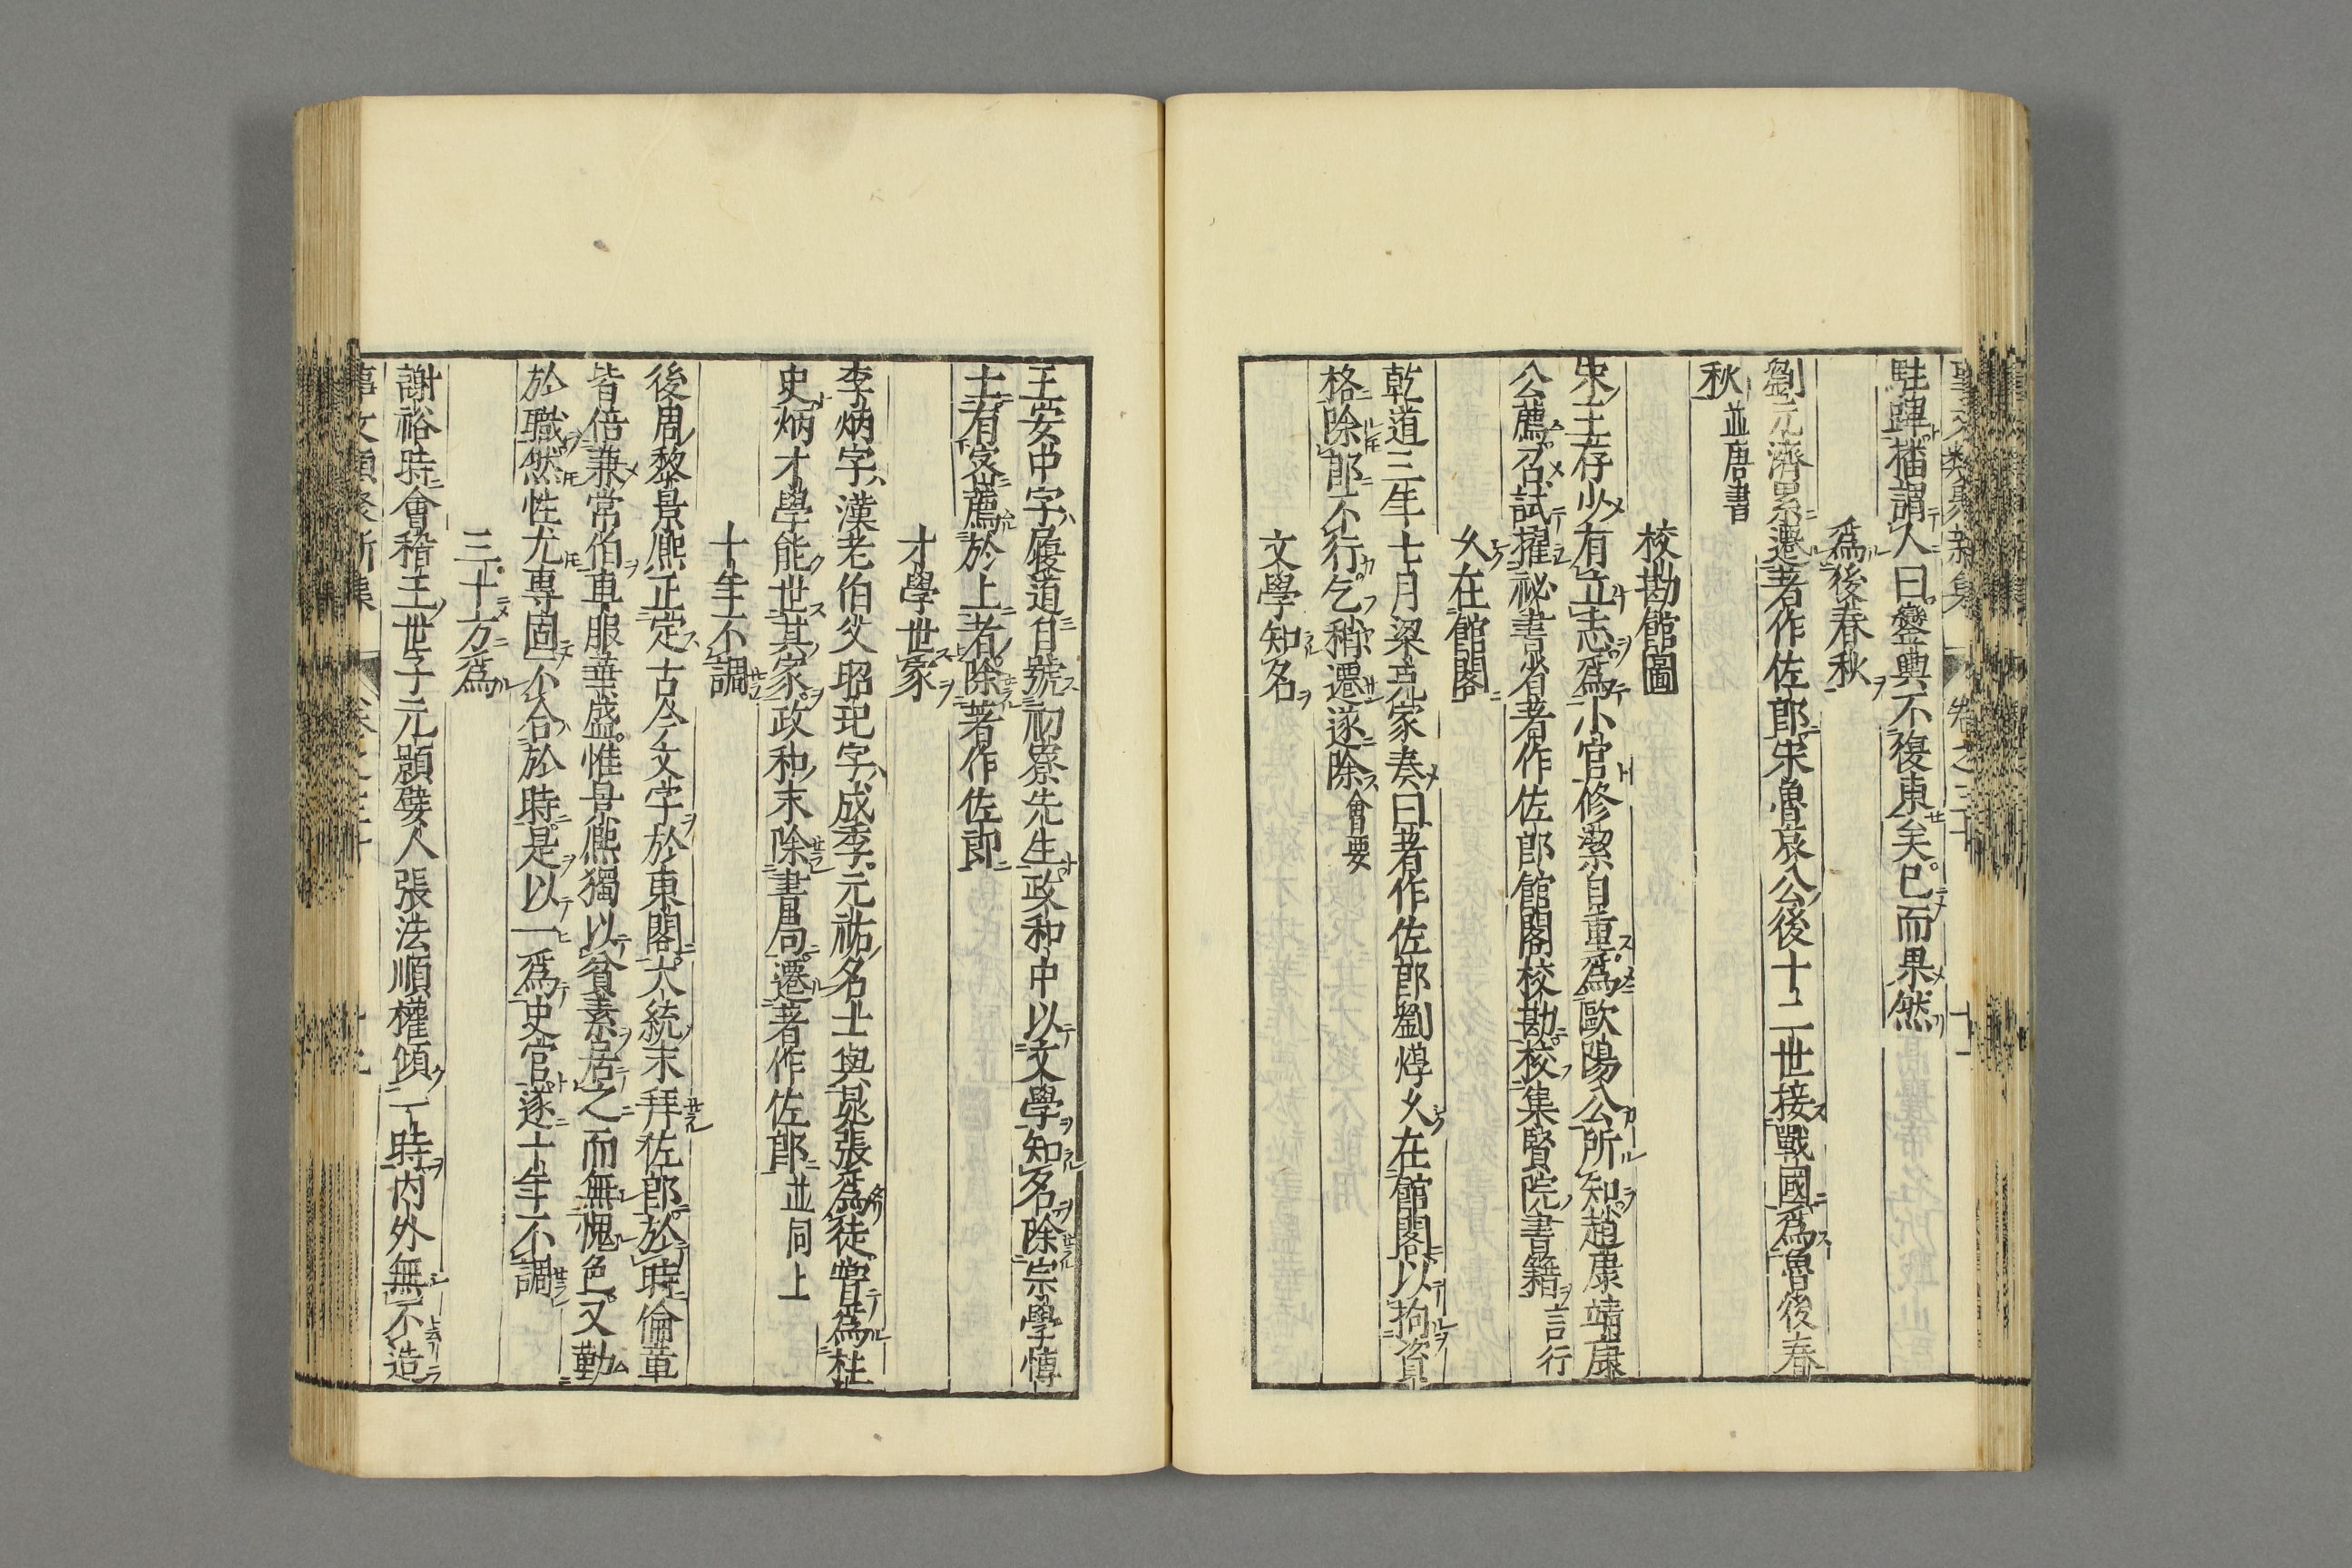 駐蹕播謂人曰鑾輿不復東矣已而果然
爲後春秋
劉元濟累遷著作佐郎宋魯哀公後十二世接戰國爲魯後春
秋並唐書
校勘館圖
宋王存少有立志爲小官修潔自重爲歐陽公所知趙康靖康
公薦召試擢祕書省著作佐郎館閣校勘校集賢院書籍言行
久在館閣
乾道三年七月梁克家奏曰著作佐郎劉焞久在館閣以拘資
格除郎不行乞稍遷遂除會要
文學知名
王安中字履道自號初寮先生政和中以文學知名除宗學博
士有密薦於上者除著作佐郎
才學世家
李炳字漢老伯父昭玘字成季元祐名士與晁張爲徒嘗爲柱
史炳才學能世其家政和末除書局遷著作佐郎並同上
十年不調
後周黎景熈正定古今文字於東閣大統末拜佐郎於時倫輩
皆倍兼常伯車服華盛惟景熈獨以貧素居之而無愧色又勤
於職然性尤專固不合於時是以一爲史官遂十年不調
三十方爲
謝裕時會稽王世子元顯嬖人張法順權傾一時內外無不造